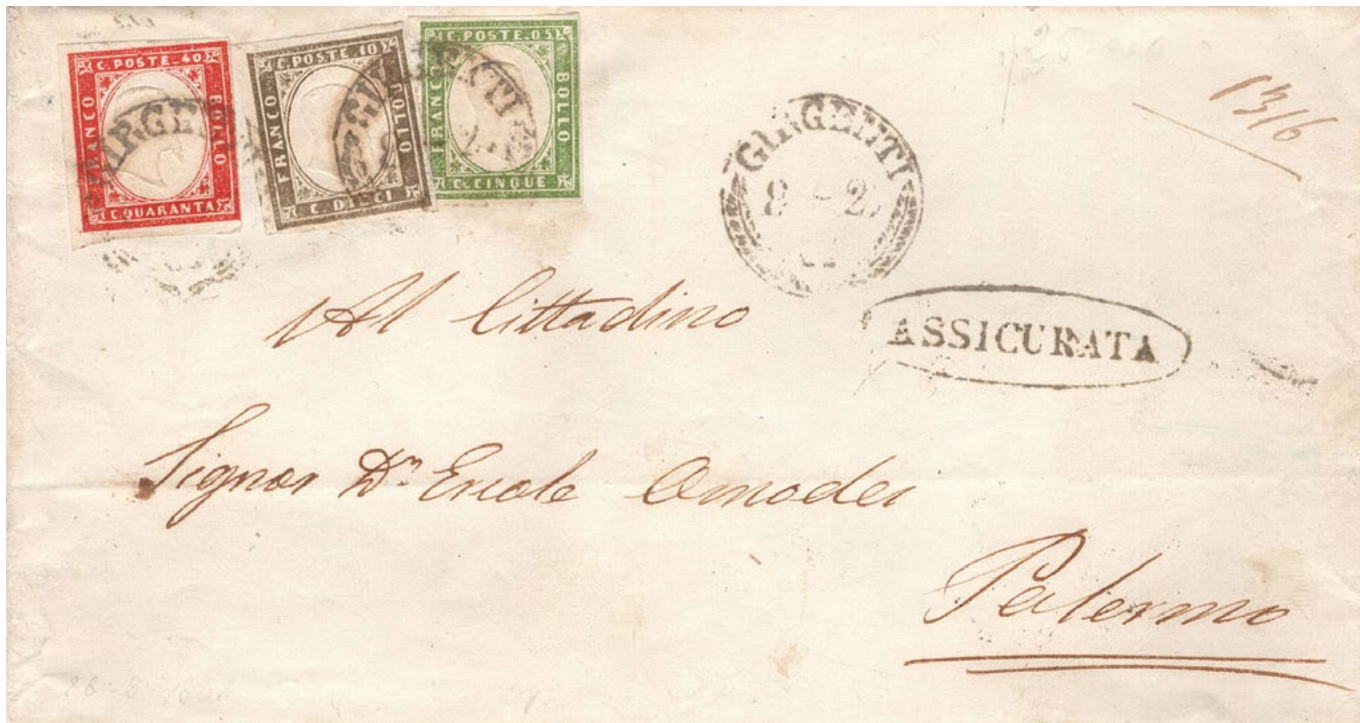 C. POSTE. 40.
FRANCO
BOLLO
C. QUARANTA
C. POSTE. 10
FRANCO
BOLLO
C. DIECI
C. POSTE. 05
FRANCO
BOLLO
C. CINQUE
GIRGENTI
13/6
ASSICURATA
Al Cittadino
Signor Dn Ercole Amodei
Palermo